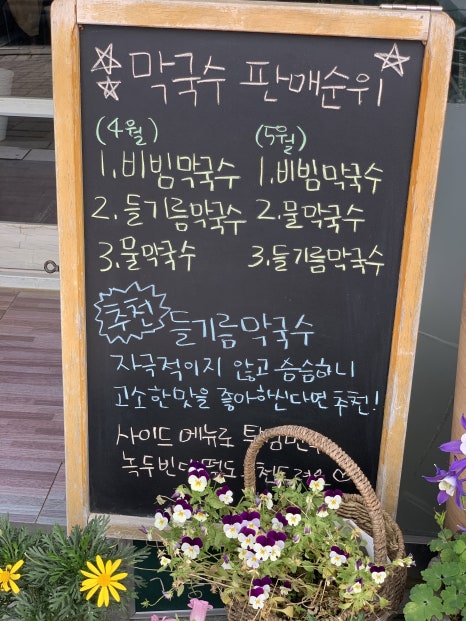 막국수 판매순위
(4월) (5월)
1. 비빔막국수 1. 비빔막국수
2. 들기름막국수 2. 물막국수
3. 물막국수 3. 들기름막국수
추천 들기름막국수
자극적이지 않고 슴슴하니
고소한맛을 좋아하신다면 추천!
사이드 메뉴로
녹두빈대떡도